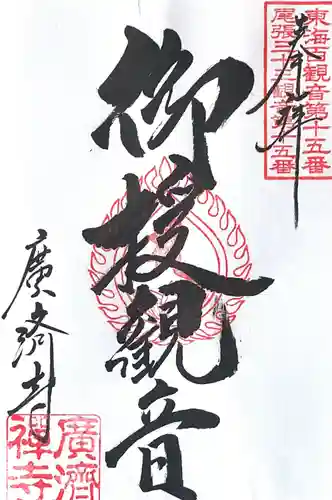 東海百観音第十五番
尾張三十三観音第十五番
奉拝
御授觀音
廣済寺
廣濟
禪寺